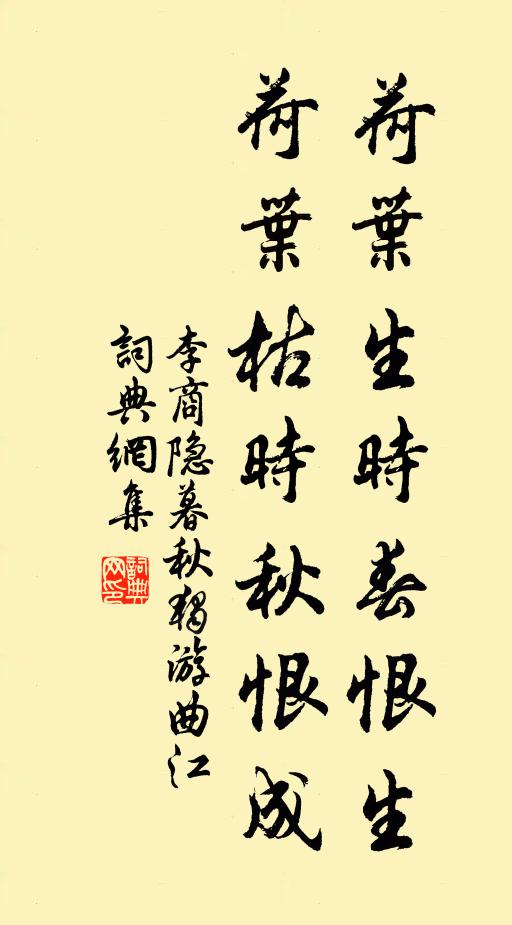 荷葉生時春恨生
荷葉枯時秋恨成
李商隐暮秋獨游曲江
詞典網集
詞典網印